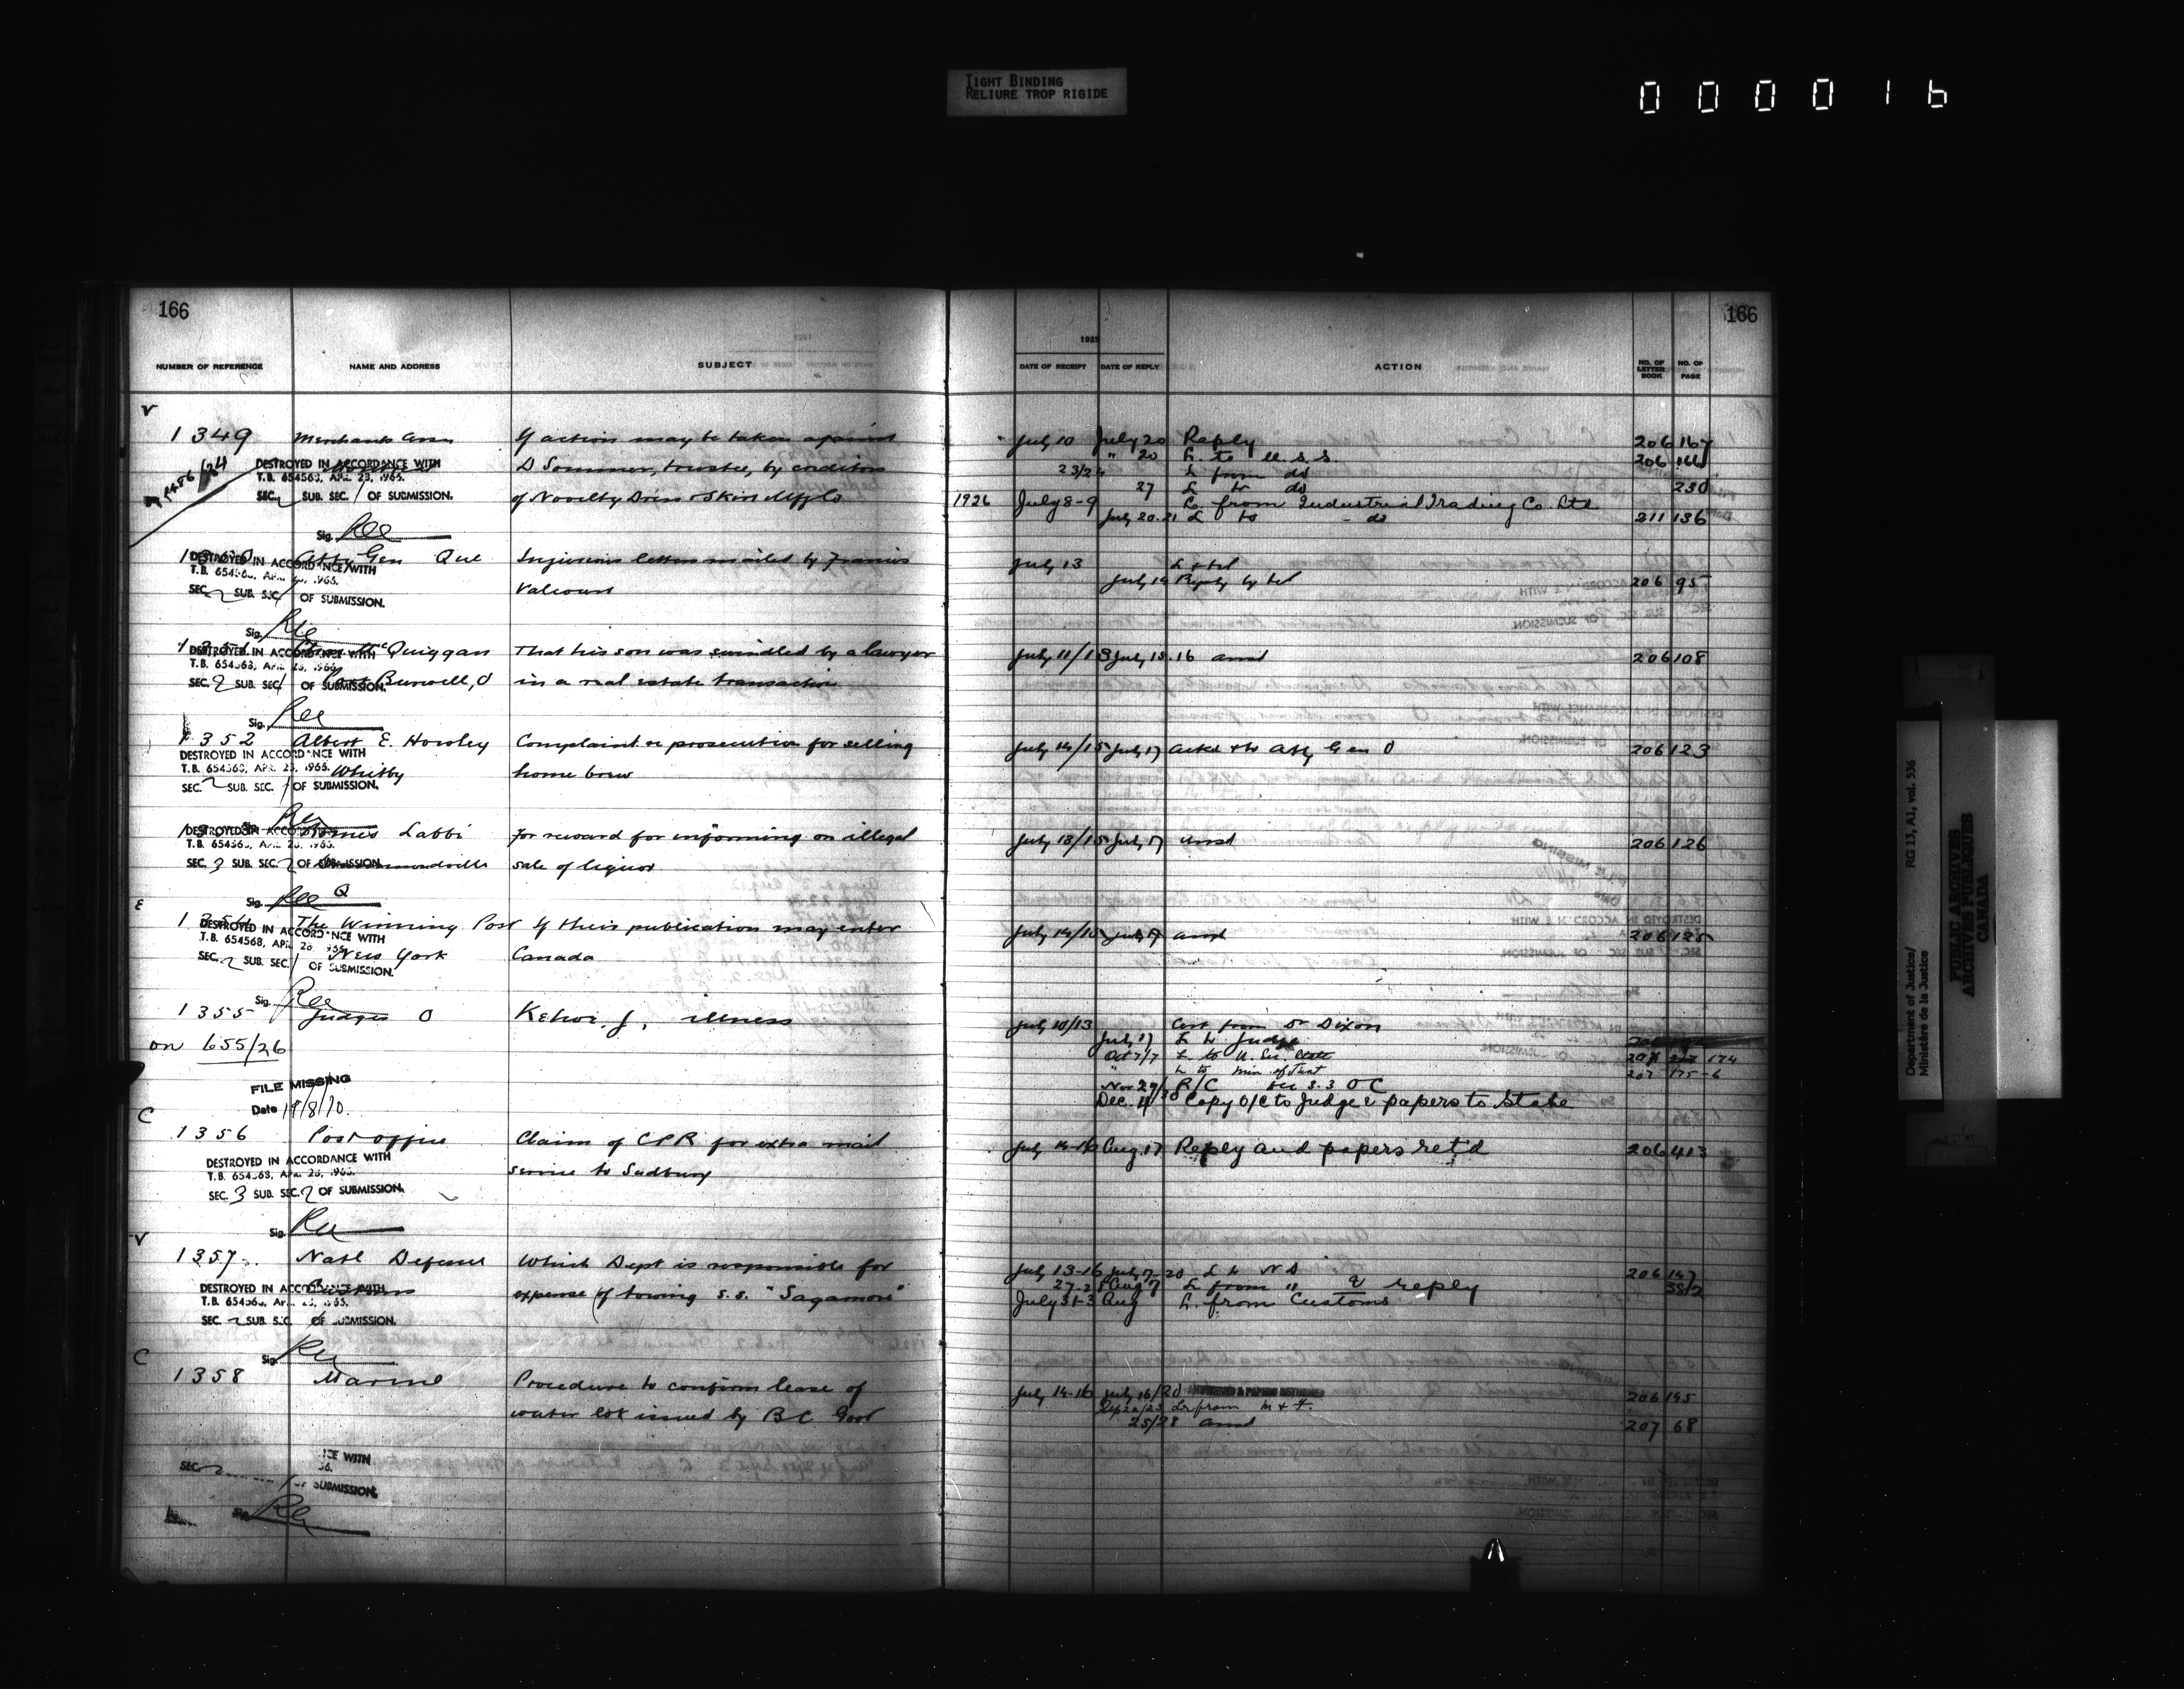 TIGHT BINDING
RELIURE TROP RIGIDE
000016
166
166
NUMBER OF REFERENCE NAME AND ADDRESS SUBJECT
DATE OF RECEIPT DATE OF REPLY ACTION NO. OF LETTER BOOK NO. OF PAGE
V
1349 Merchants Assn If action may be taken against July 10 July 20 Reply 206 167
D Sommer, trustee, by creditors " 20 L. to U.S.S. 206 166
DESTROYED IN ACCORDANCE WITH
T.B. 654563, APR. 23, 1965.
SEC. 2 SUB. SEC. 1 OF SUBMISSION.
23/24 L from do
27 L to do 230
of Novelty Dress & Skirt Mfg Co 1926 July 8-9 L. from Industrial Trading Co. Ltd
July 20.21 L to - do 211 136
Sig. Ree
Atty Gen Que Injurious letters mailed by Francis July 13 L & tel
Valcourt July 14 Reply by tel 206 95
DESTROYED IN ACCORDANCE WITH
SEC. 2 SUB. SEC. 1 OF SUBMISSION.
Sig. Ree
Quiggan That his son was swindled by a lawyer July 11/13 July 15.16 ansd 206 108
Burwell, O in a real estate transaction
DESTROYED IN ACCORDANCE WITH
SEC. 2 SUB. SEC. 1 OF SUBMISSION.
Sig. Ree
1352 Albert E. Howley Complaint re prosecution for selling July 14/15 July 17 Ackd & to Atty Gen O 206 123
Whitby home brew
DESTROYED IN ACCORDANCE WITH
SEC. 2 SUB. SEC. 1 OF SUBMISSION.
Labbi For reward for informing on illegal July 13/15 July 17 ansd 206 126
sale of liquor
SEC. 3 SUB. SEC. 2 OF SUBMISSION.
Q
Sig. Ree
E
The Winning Post If their publication may enter July 14/15 July 17 ansd 206 125
New York Canada
DESTROYED IN ACCORDANCE WITH
SEC. 2 SUB. SEC. 1 OF SUBMISSION.
Sig. Ree
1355 Judges O Kehoe, J, illness July 10/13 Cert from Dr Dixon
on 655/26 July 17 L to Judge
Oct 7/7 L to U. Sec. State 174
L to Min of Just 207 175-6
FILE MISSING
Date 19/8/70.
R/C
Dec. 4 Copy O/C to Judge & papers to State
C
1356 Post Office Claim of CPR for extra mail July 14-16 Aug. 17 Reply and papers ret'd 206 413
service to Sudbury
DESTROYED IN ACCORDANCE WITH
SEC. 3 SUB. SEC. 2 OF SUBMISSION.
Sig. Ree
V
1357 Natl Defence Which Dept is responsible for July 13-16 July 17-20 L to N D 206 147
expense of towing S.S. "Sagamore" Aug 7 L from " & reply 382
July 31-3 Aug L. from Customs
DESTROYED IN ACCORDANCE WITH
SEC. 2 SUB. SEC. OF SUBMISSION.
Sig. Ree
C
1358 Marine Procedure to confirm lease of July 14-16 July 16/20 ANSWERED & PAPERS RETURNED 206 145
water lot issued by BC Govt Sep 22/23 Lr from M & F.
25/28 ansd 207 68
SEC. 2
OF SUBMISSION.
Sig. Ree
Department of Justice/
Ministère de la Justice
RG 13, A1, vol. 536
PUBLIC ARCHIVES
ARCHIVES PUBLIQUES
CANADA